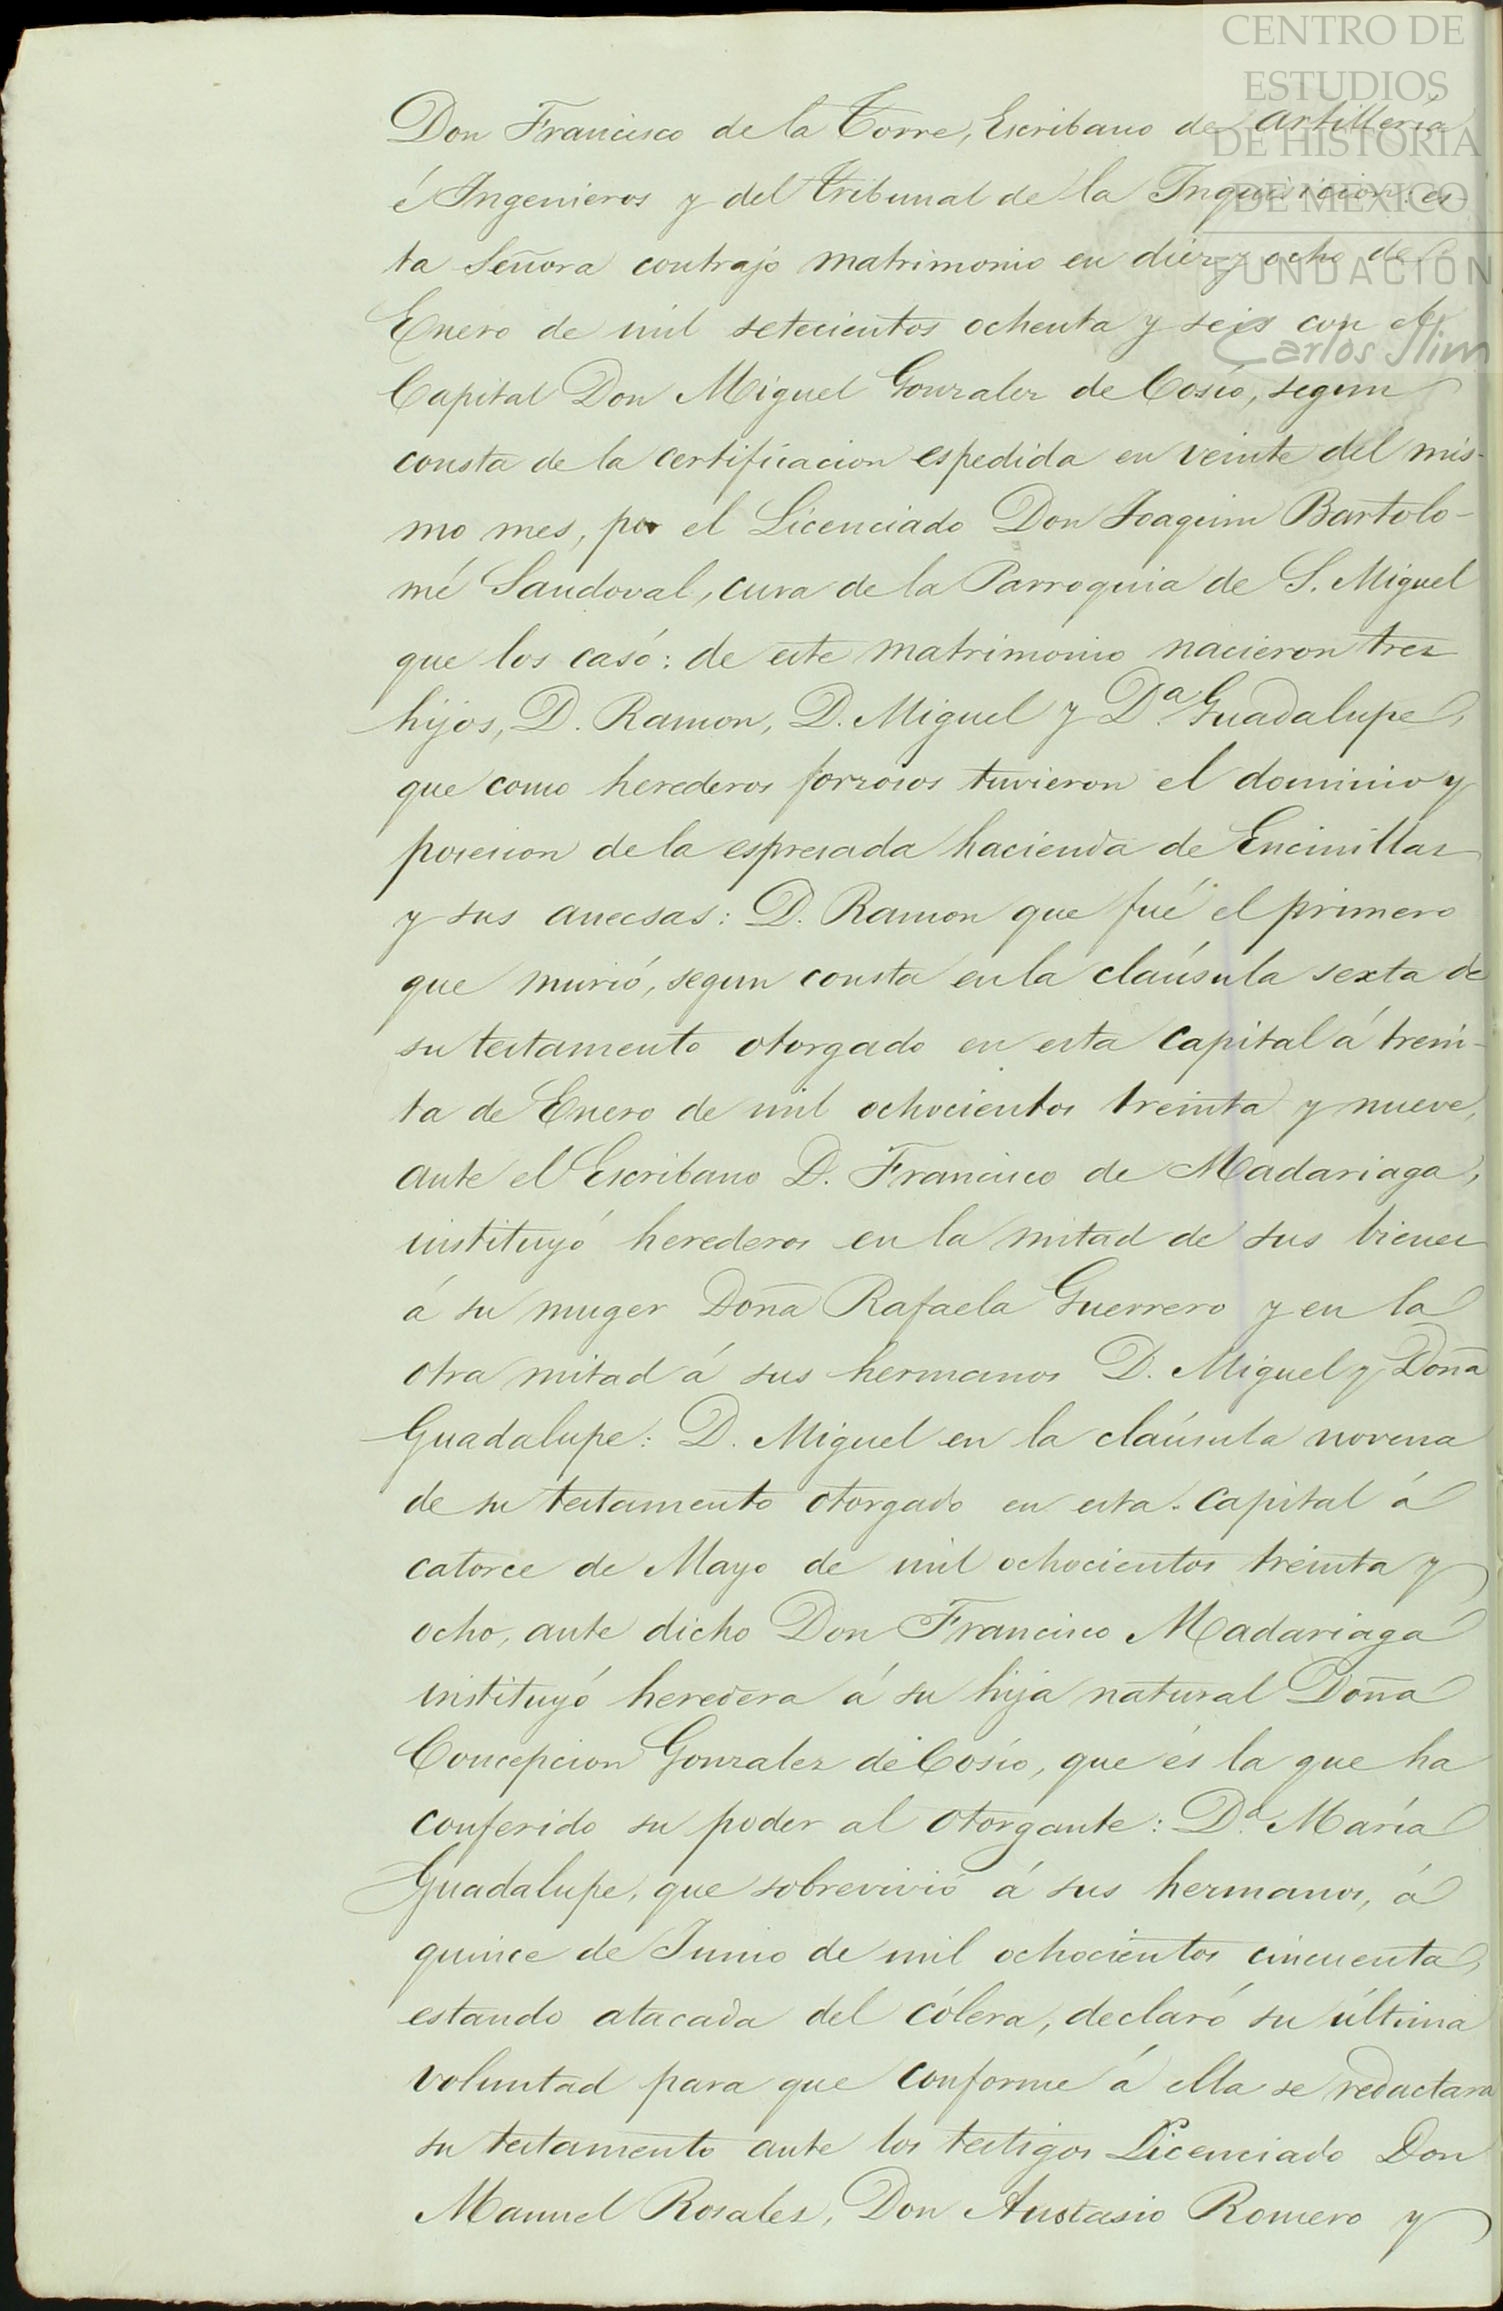 CENTRO DE
ESTUDIOS
DE HISTORIA
DE MEXICO
FUNDACION
Carlos Slim
Don Francisco de la Torre, Escribano de Artillería
é Ingenieros y del tribunal de la Inquisicion: es-
ta Señora contrajo matrimonio en diez y ocho de
Enero de mil setecientos ochenta y seis con el
Capital Don Miguel Gonzalez de Cosío, segun
consta de la certificacion espedida en veinte del mis-
mo mes, por el Licenciado Don Joaquin Bartolo-
mé Sandoval, cura de la Parroquia de S. Miguel
que los casó: de este matrimonio nacieron tres
hijos, D. Ramon, D. Miguel y D.ª Guadalupe,
que como herederos forzosos tuvieron el dominio y
posesion de la espresada hacienda de Encinillas
y sus anecsas: D. Ramon que fué el primero
que murió, segun consta en la claúsula sexta de
su testamento otorgado en esta Capital á trein-
ta de Enero de mil ochocientos treinta y nueve,
ante el Escribano D. Francisco de Madariaga,
instituyó herederos en la mitad de sus bienes
á su muger Doña Rafaela Guerrero y en la
otra mitad á sus hermanos D. Miguel y Doña
Guadalupe: D. Miguel en la claúsula novena
de su testamento otorgado en esta Capital á
catorce de Mayo de mil ochocientos treinta y
ocho, ante dicho Don Francisco Madariaga
instituyó heredera á su hija natural Doña
Concepcion Gonzalez de Cosío, que és la que ha
conferido su poder al otorgante: D.ª María
Guadalupe, que sobrevivió á sus hermanos, á
quince de Junio de mil ochocientos cincuenta,
estando atacada del cólera, declaró su última
voluntad para que conforme á ella se redactara
su testamento ante los testigos Licenciado Don
Manuel Rosales, Don Anastasio Romero y